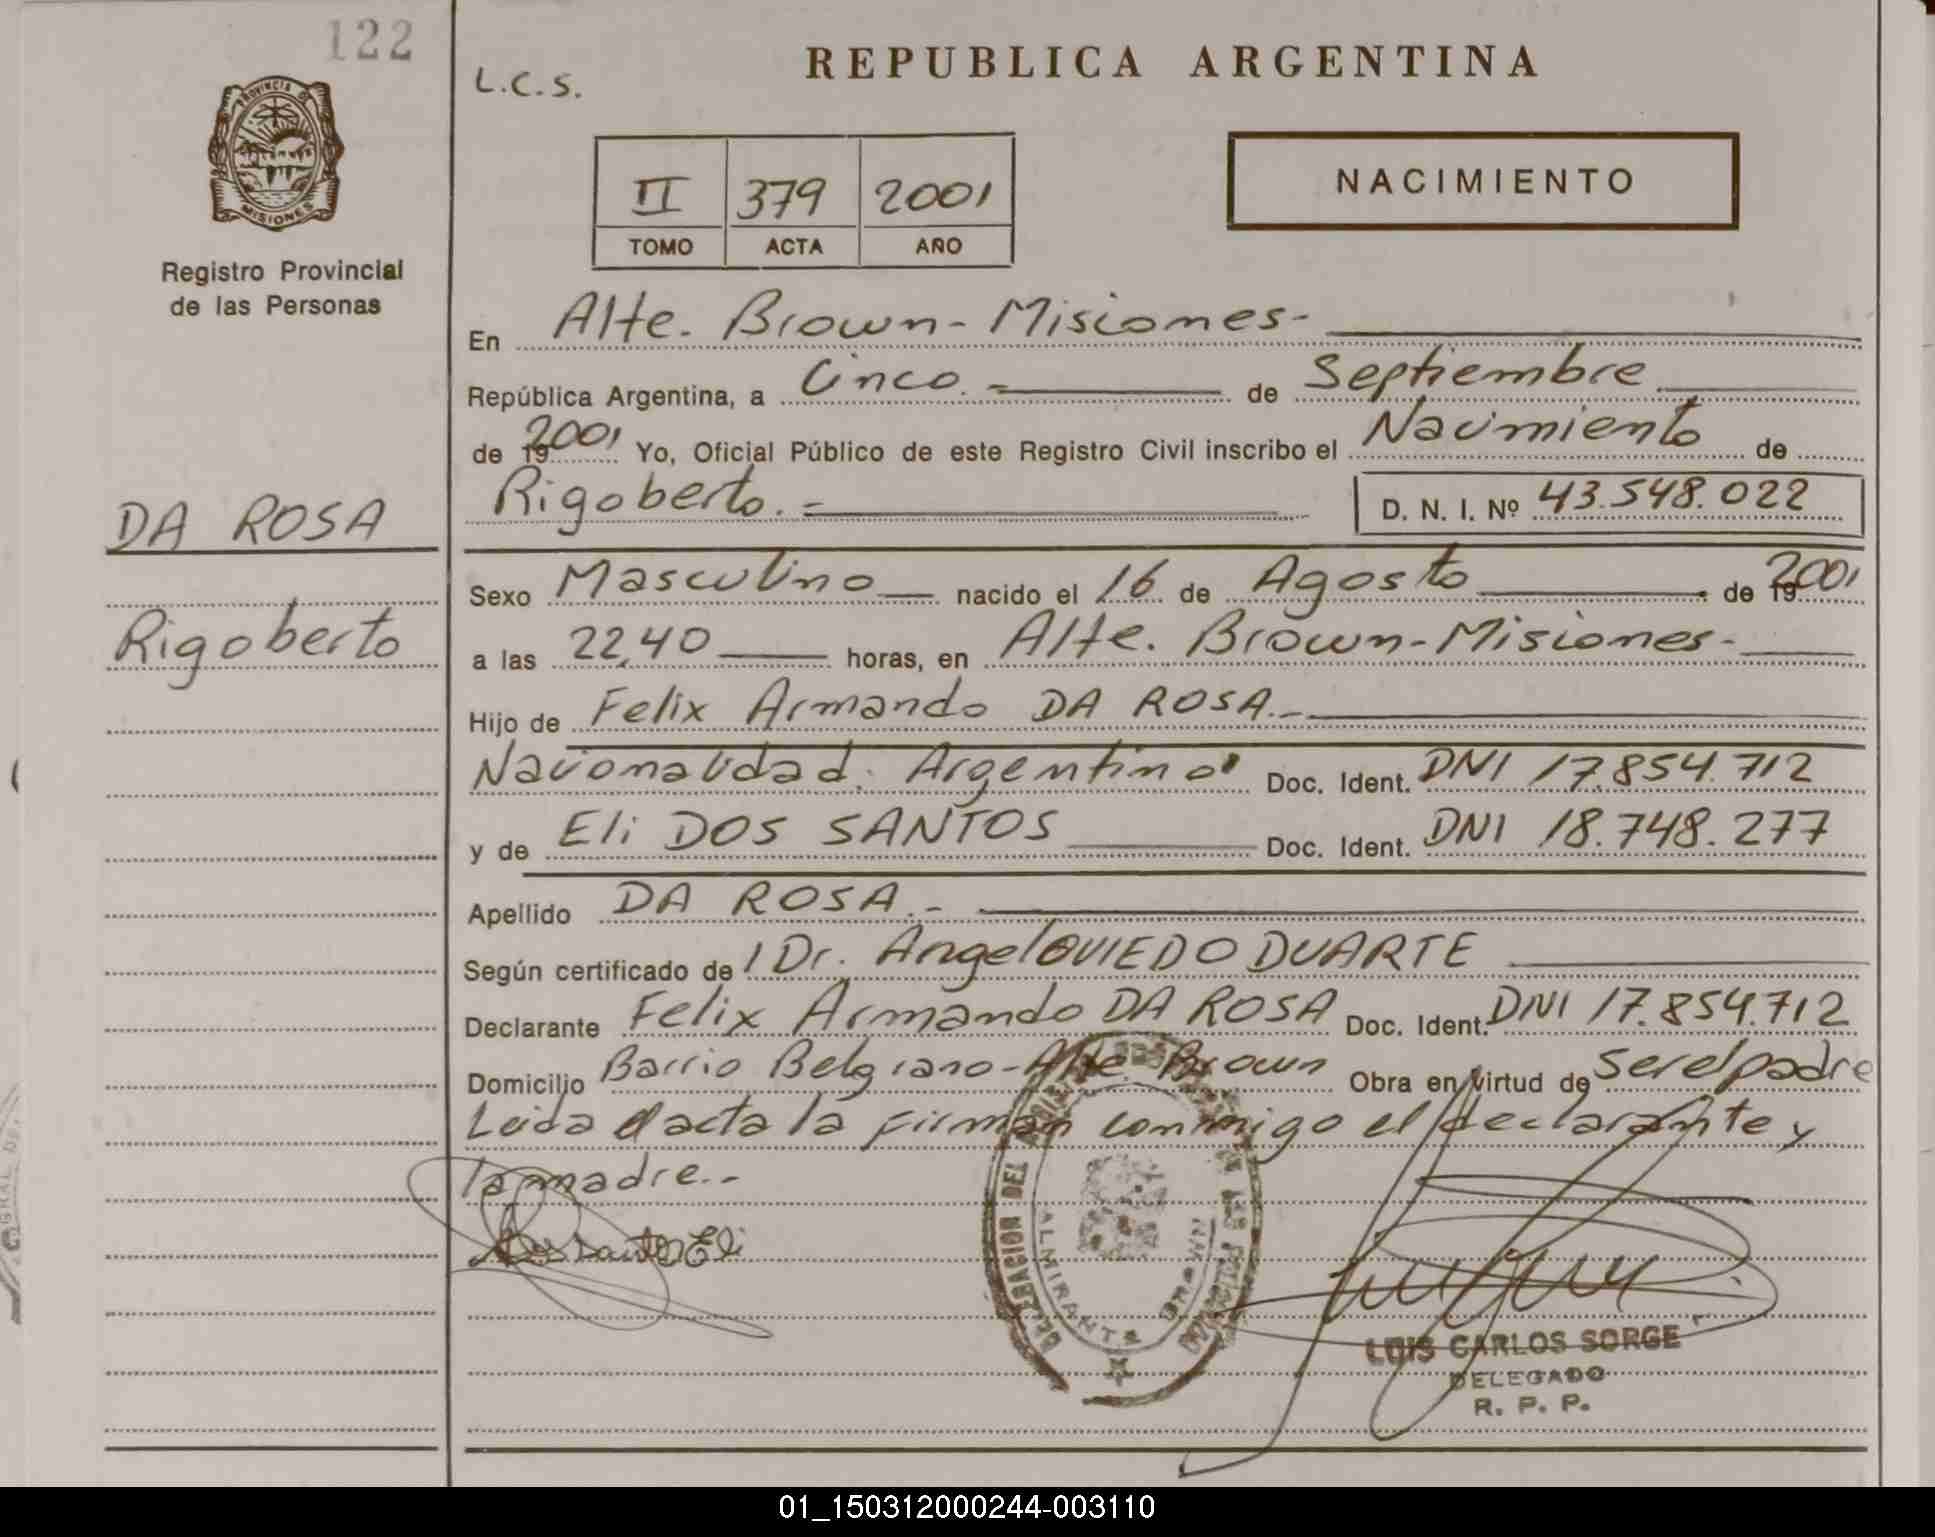 122
PROVINCIA DE
MISIONES
Registro Provincial
de las Personas
DA ROSA
Rigoberto
L.C.S.
REPUBLICA ARGENTINA
II 379 2001
TOMO ACTA AÑO
NACIMIENTO
En Alte. Brown - Misiones -
República Argentina, a Cinco.- de Septiembre
de 2001 Yo, Oficial Público de este Registro Civil inscribo el Nacimiento de
Rigoberto.- D. N. I. Nº 43.548.022
Sexo Masculino nacido el 16 de Agosto de 2001
a las 22,40 horas, en Alte. Brown - Misiones -
Hijo de Felix Armando DA ROSA.-
Nacionalidad: Argentino Doc. Ident. DNI 17.854.712
y de Eli DOS SANTOS Doc. Ident. DNI 18.748.277
Apellido DA ROSA.-
Según certificado de Dr. Angel OVIEDO DUARTE
Declarante Felix Armando DA ROSA Doc. Ident. DNI 17.854.712
Domicilio Barrio Belgrano - Alte. Brown Obra en virtud de ser el padre
Leida el acta la firman conmigo el declarante y
la madre.-
Dos Santos Eli
DELEGACION DEL
ALMIRANTE BROWN
LUIS CARLOS SORGE
DELEGADO
R. P. P.
01_150312000244-003110